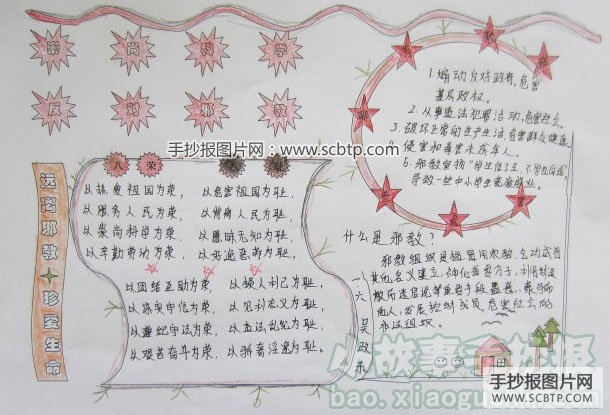 崇 尚 科 学
反 对 邪 教
手抄报图片网:www.scbtp.com
远离邪教 珍爱生命
八 荣 八 耻
以热爱祖国为荣,以危害祖国为耻,
以服务人民为荣,以背离人民为耻,
以崇尚科学为荣,以愚昧无知为耻,
以辛勤劳动为荣,以好逸恶劳为耻,
以团结互助为荣,以损人利己为耻,
以诚实守信为荣,以见利忘义为耻,
以遵纪守法为荣,以违法乱纪为耻,
以艰苦奋斗为荣,以骄奢淫逸为耻。
1.煽动反对政府,危害
基层政权。
2.从事违法犯罪活动,危害社会。
3.破坏正常的生产生活,危害群众健康,
侵害和毒害未成年人。
5.邪教宣扬
导致一些中小学生荒废学业。
什么是邪教?
邪教组织是指冒用宗教、气功或者
其他名义建立,神化首要分子,利用制造
散布迷信邪说等手段蛊惑、蒙骗
他人,发展控制成员,危害社会的
非法组织。
一 六 吴政东
小故事手抄报
bao.xiaogushi
手抄报图片网
SCBTP.COM